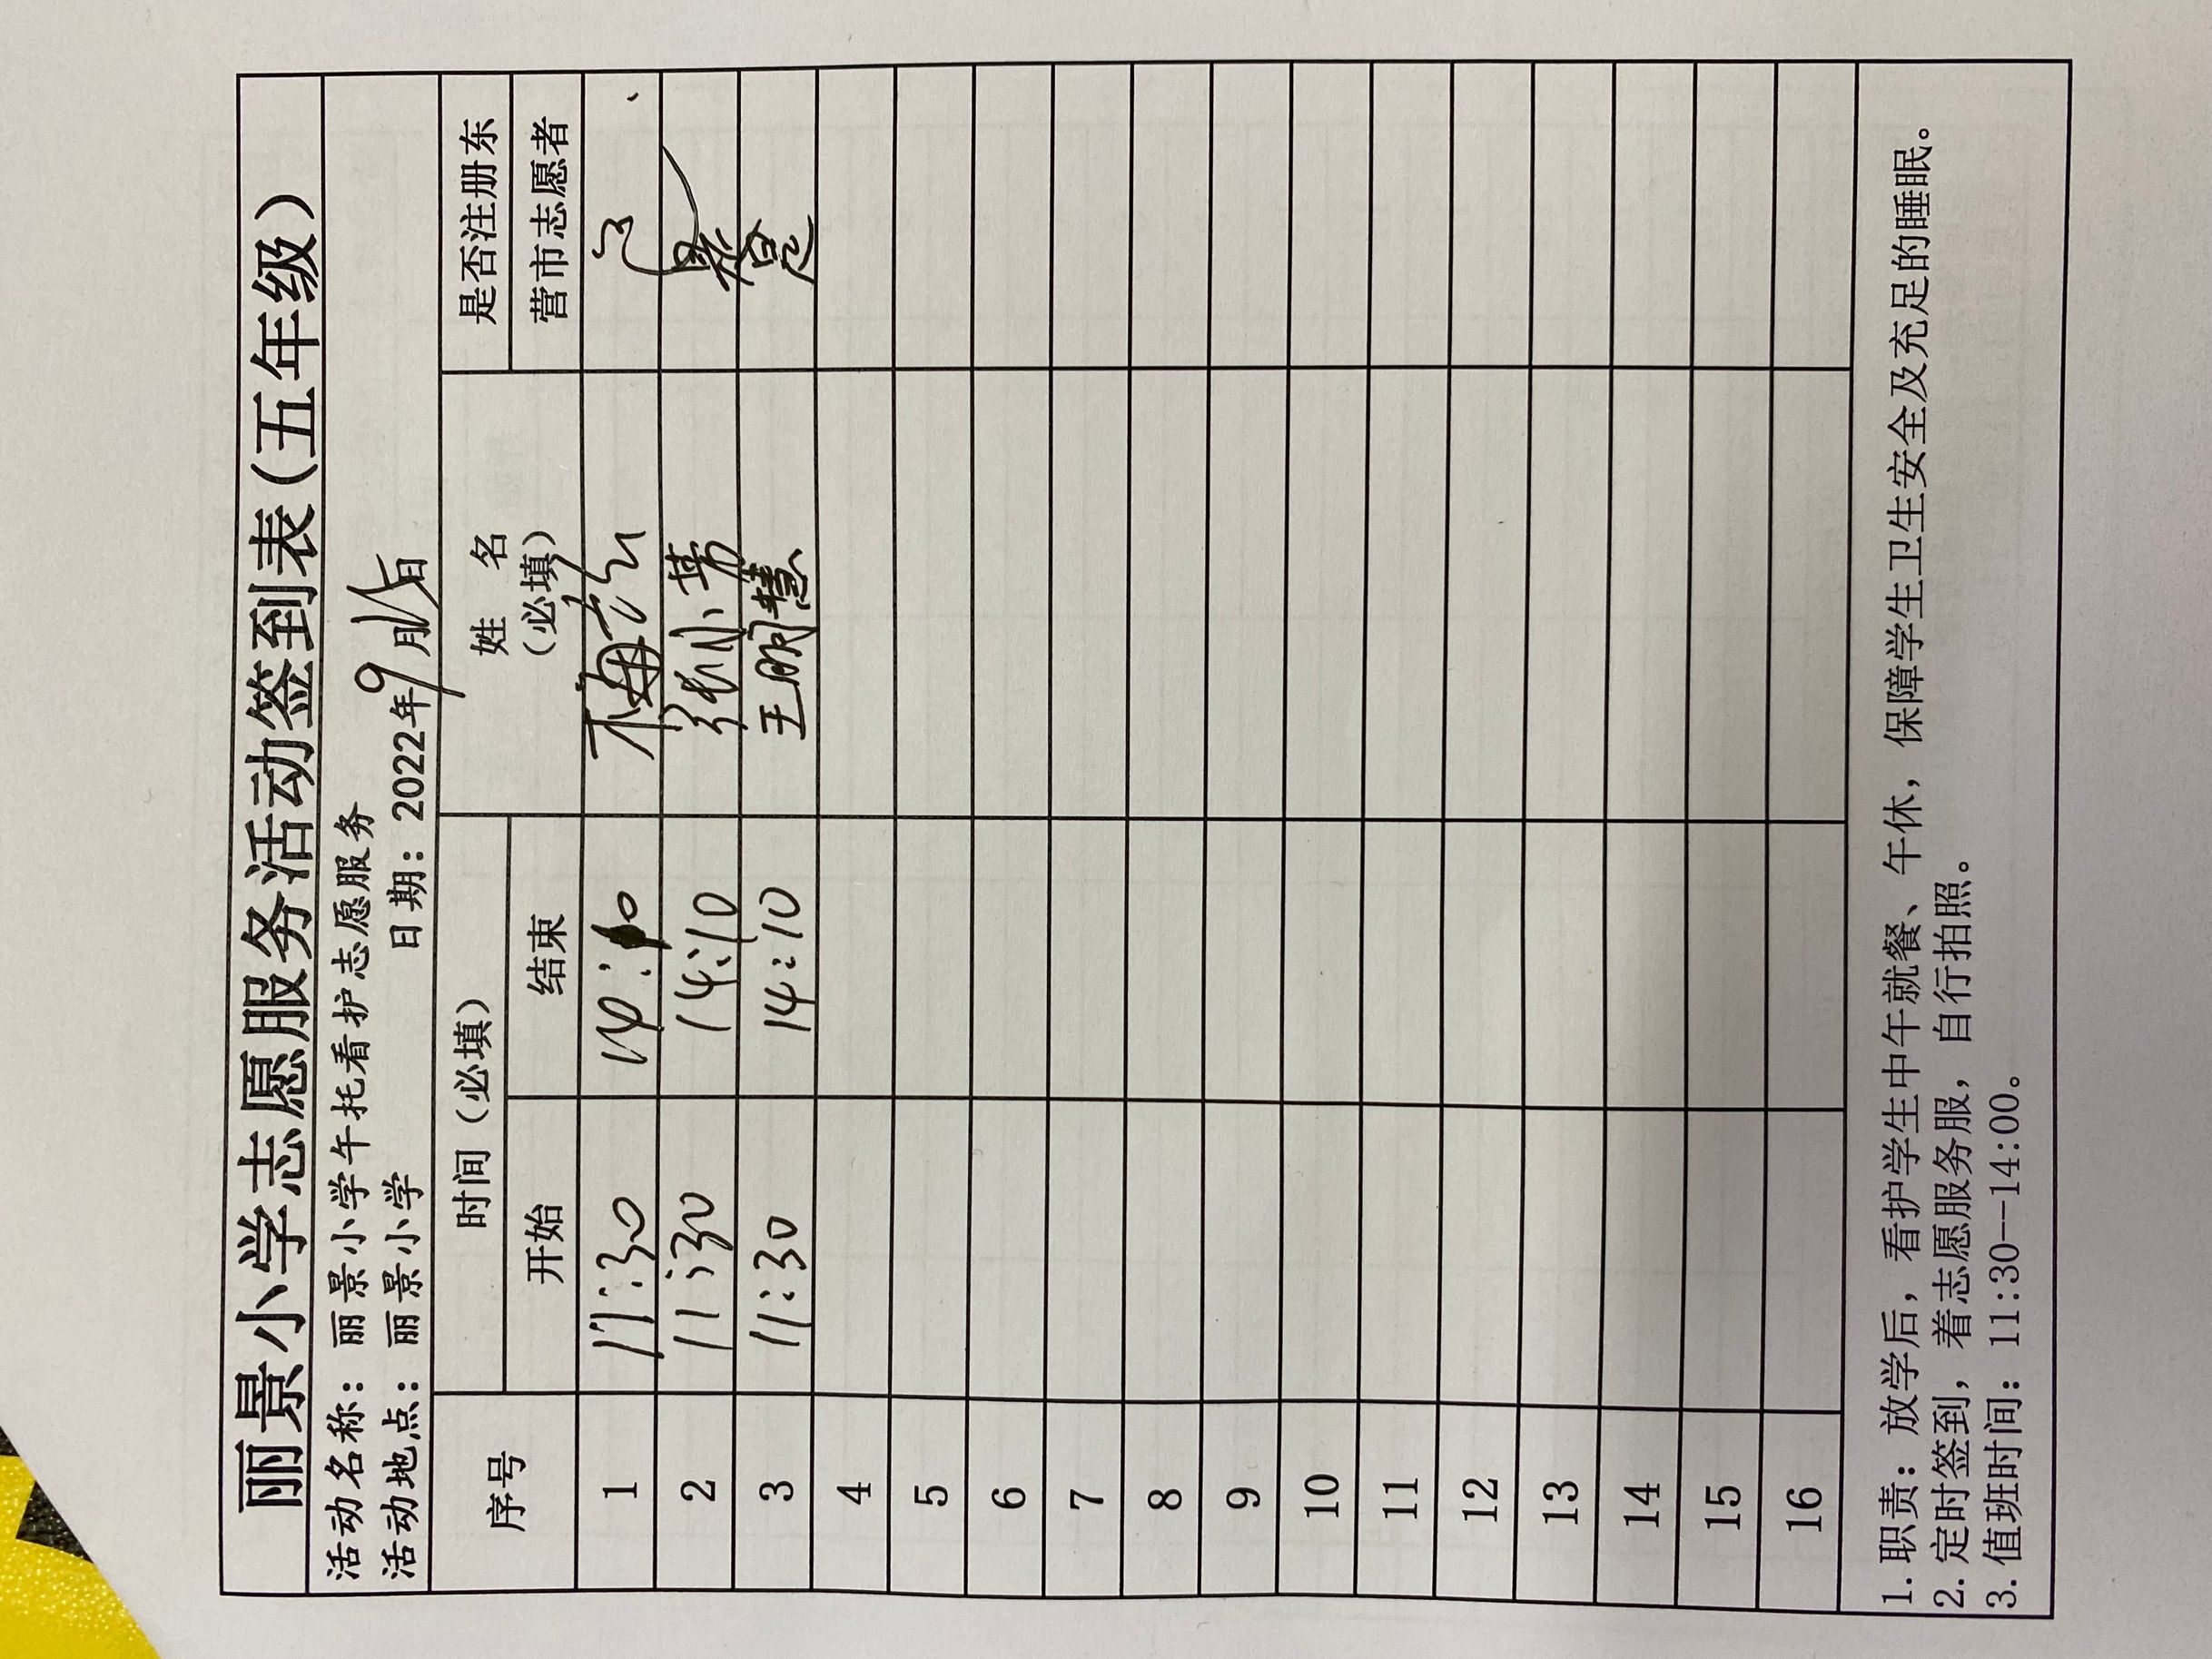 丽景小学志愿服务活动签到表（五年级）
活动名称：丽景小学午托看护志愿服务
活动地点：丽景小学 日期：2022年9月15日
序号 时间（必填） 姓 名（必填） 是否注册东营市志愿者
开始 结束
1 11:30 14:10 梅
2 11:30 14:10 张小菁 是
3 11:30 14:10 王丽慧 是
4
5
6
7
8
9
10
11
12
13
14
15
16
1.职责：放学后，看护学生中午就餐、午休，保障学生卫生安全及充足的睡眠。
2.定时签到，着志愿服务服，自行拍照。
3.值班时间：11:30--14:00。